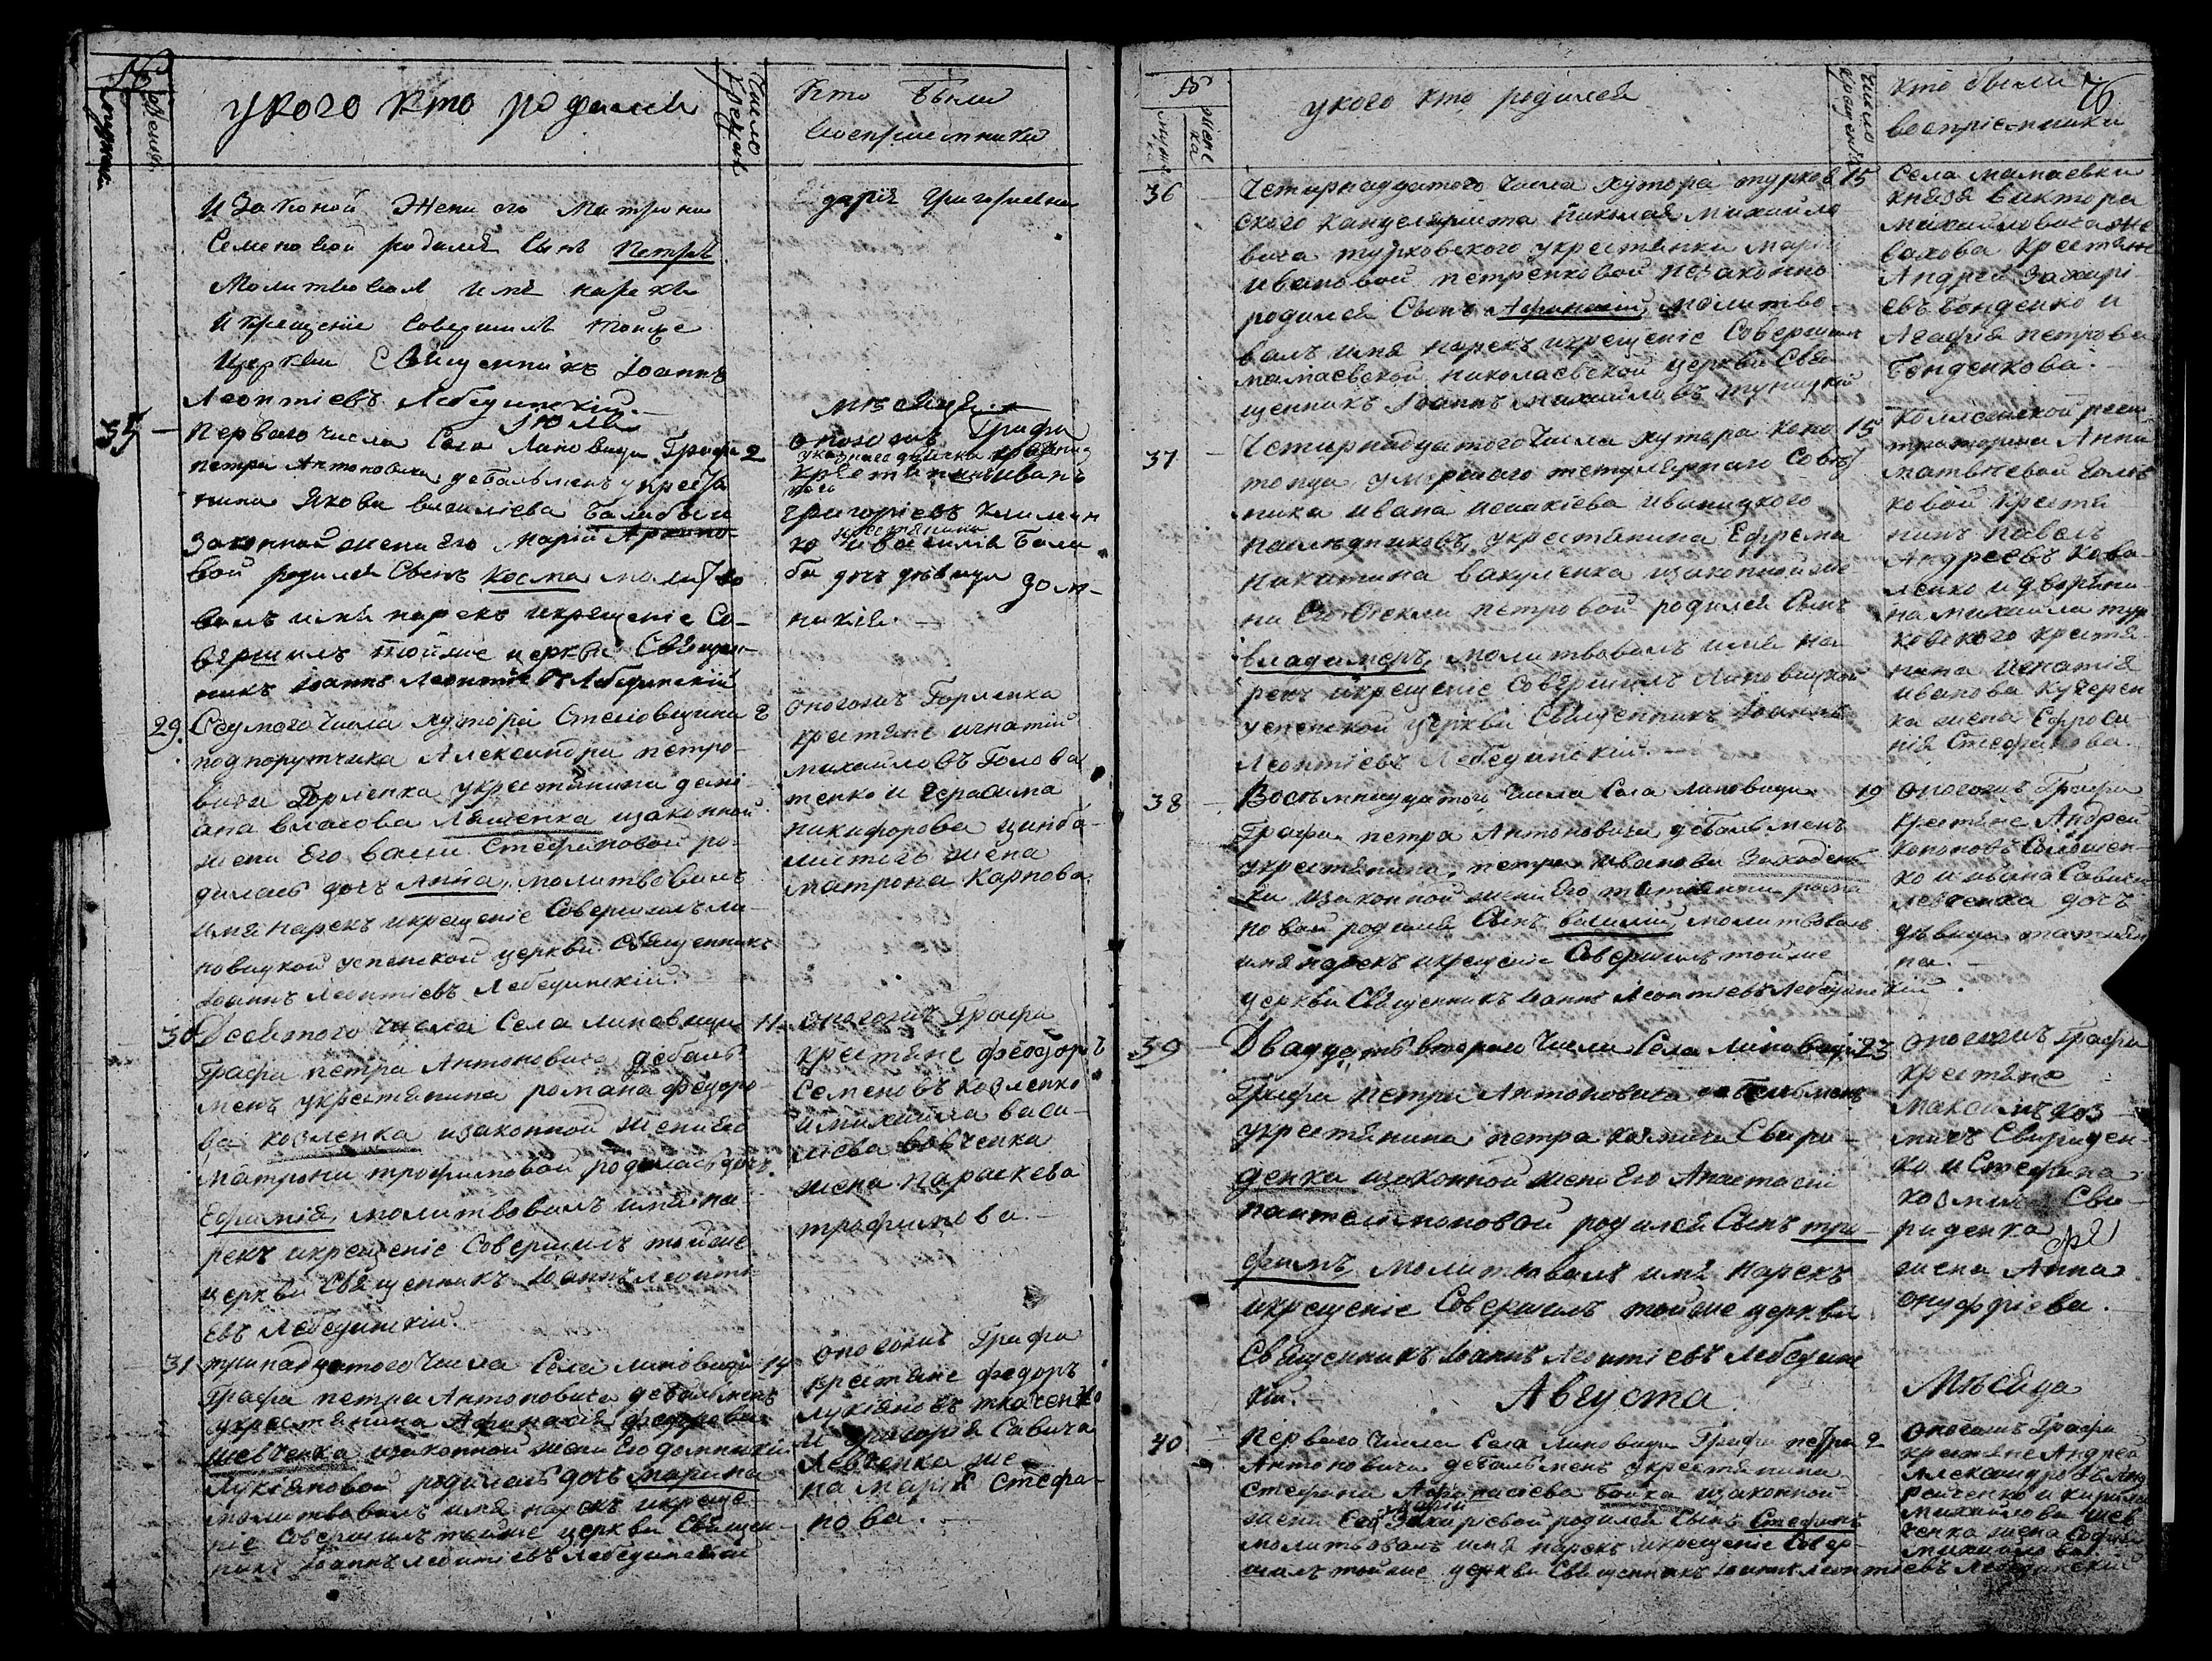 №
мужеска
женска
У кого кто родился
Число
Крещенія
Кто Были
Воспріемники
И Законой Жены его Матроны
Семеновой родился Сынъ Петръ
Молитвовал имя нарекъ
И Крещеніе Совершилъ тойже
Церкви Священникъ Іоаннъ
Леонтіевъ Лебединскій.
Дарія Григорiевна
Іюля
мѣсяца
35
Перваго числа Села Линовици Графа 2
Петра Антоновича дебальменъ у крестя
нина Якова василіева Балабы и
Законной жены Его Маріи
вой родился Сынъ Косма молитво
валъ имя нарекъ и крещеніе Со-
вершилъ тойже церкви Священ-
никъ Іоаннъ Леонтіевъ Лебединскій
оногожъ Графа
крестянинъ Иванъ
Григоріевъ Климен
ко и василія Бала
бы дочъ дѣвица Дом-
никія.
29.
Седмого числа хутора Стеновщини 8
подпорутчика Александра петро-
вича Горленка у крестянина дамі
ана власова Ляшенка и законной
жены Его васы Стефановой ро-
дилась дочъ Анна, молитвовалъ
имя нарекъ и крещеніе Совершилъ ли-
новицкой успенской церкви Священникъ
Іоаннъ Леонтіевъ Лебединскій.
оногожъ Горленка
крестяне игнатій
михайловъ Голова
тенко и Герасима
никифорова цимба-
листого жена
матрона Карпова.
30
Десятого числа Села линовици 11
Графа петра Антоновича дебаль-
менъ у крестянина романа федоро-
ва козленка и законной жены Его
матроны трофимовой родилась дочъ
Ефимія, молитвовалъ имя на
рекъ и крещеніе Совершилъ тойже
церкви Священникъ Іоаннъ леонті-
евъ Лебединскій.
оногожъ Графа
крестяне феодоръ
Семеновъ козленко
и михайла васи-
ліева вовченка
жена параскева
трофимова.
31
тринадцатого числа Села линовици 14
Графа петра Антоновича дебальменъ
у крестянина Афанасія федорова
шевченка и законной жены Его домникіи
Лукіановой родилась дочъ марина
молитвовалъ имя нарекъ и креще-
ніе Совершилъ тойже церкви Священ-
никъ Іоаннъ леонтіевъ Лебединский
оногожъ Графа
крестяне федоръ
лукіановъ ткаченко
и григорія Савича
Левченка же
на марія Стефа-
нова.
№
мужеска
женска
у кого кто родился
число
крещенія
кто были
воспріемники
76
36
Четирнадцатого числа хутора турков 15
ского канцеляриста николая михайло
вича турковского у крестянки маріи
ивановой петренковой незаконно
родился Сынъ Афанасій, молитво-
валъ имя нарекъ и крещеніе Совершилъ
мамаевской николаевской церкви Свя-
щенникъ Іоаннъ михайловъ
Села мамаевки
князя виктора
михайловича же
вахова крестяне
Андрей Захарі
евъ Бонденко и
Агафія петрова
Бонденкова.
37
Четирнадцатого числа хутора коно 15
топца умершаго титулярнаго Совѣт
ника ивана исаакіева иваницкого
наслѣдниковъ, у крестянина Ефрема
никитина вакуленка и законной же
ны Его Фекли петровой родился Сынъ
владимеръ, молитвовалъ имя на
рекъ и крещеніе Совершилъ линовицкой
успенской церкви Священникъ Іоаннъ
Леонтіевъ Лебединскій.
Колежской регис
траторши Анны
матвѣевой
ковой крестя
нинъ павелъ
Андреевъ кова
ленко и дворяни
на михаила тур
ковского крестя
нина игнатія
иванова кучерен
ка жена Ефроси
нія Стефанова.
38
Восемнадцатого числа Села линовици 19
Графа петра Антоновича дебальменъ
у крестянина, петра иванова
ка и законной жены Его татіанны рома
новой родился Сынъ василій, молитвовалъ
имя нарекъ и крещеніе Совершилъ тойже
церкви Священникъ Іоаннъ Леонтіевъ Лебединскій.
оногожъ Графа
крестяне Андрей
кононовъ
ко и ивана Савича
левченка дочъ
дѣвица татіан
на.
39
Двадцать второго числа Села линовици 23
Графа петра Антоновича дебальменъ
у крестянина петра козмича Свири-
денка и законной жены Его Анастасіи
пантелимоновой родился Сынъ тро-
фимъ, молитвовалъ имя нарекъ
и крещеніе Совершилъ тойже церкви
Священникъ Іоаннъ Леонтіевъ Лебединс
кій.
оногожъ Графа
крестяне
максимъ коз
мичъ Свириден-
ко и Стефана
козмича Сви-
риденка
жена Анна
онуфріева.
Августа
Мѣсяца
40
Перваго числа Села линовици Графа петра 2
Антоновича дебальменъ у крестянина
Стефана Афанасіева Бойка и законной
жены Его маріи Захаріевой родился Сынъ Стефанъ
молитвовалъ имя нарекъ и крещеніе Совер-
шилъ тойже церкви Священникъ Іоаннъ Леонтіевъ Лебединскій
оногожъ Графа
крестяне Андрей
Александровъ Анд
рейченко и кирила
михайлова шев
ченка жена Софія
михайлова